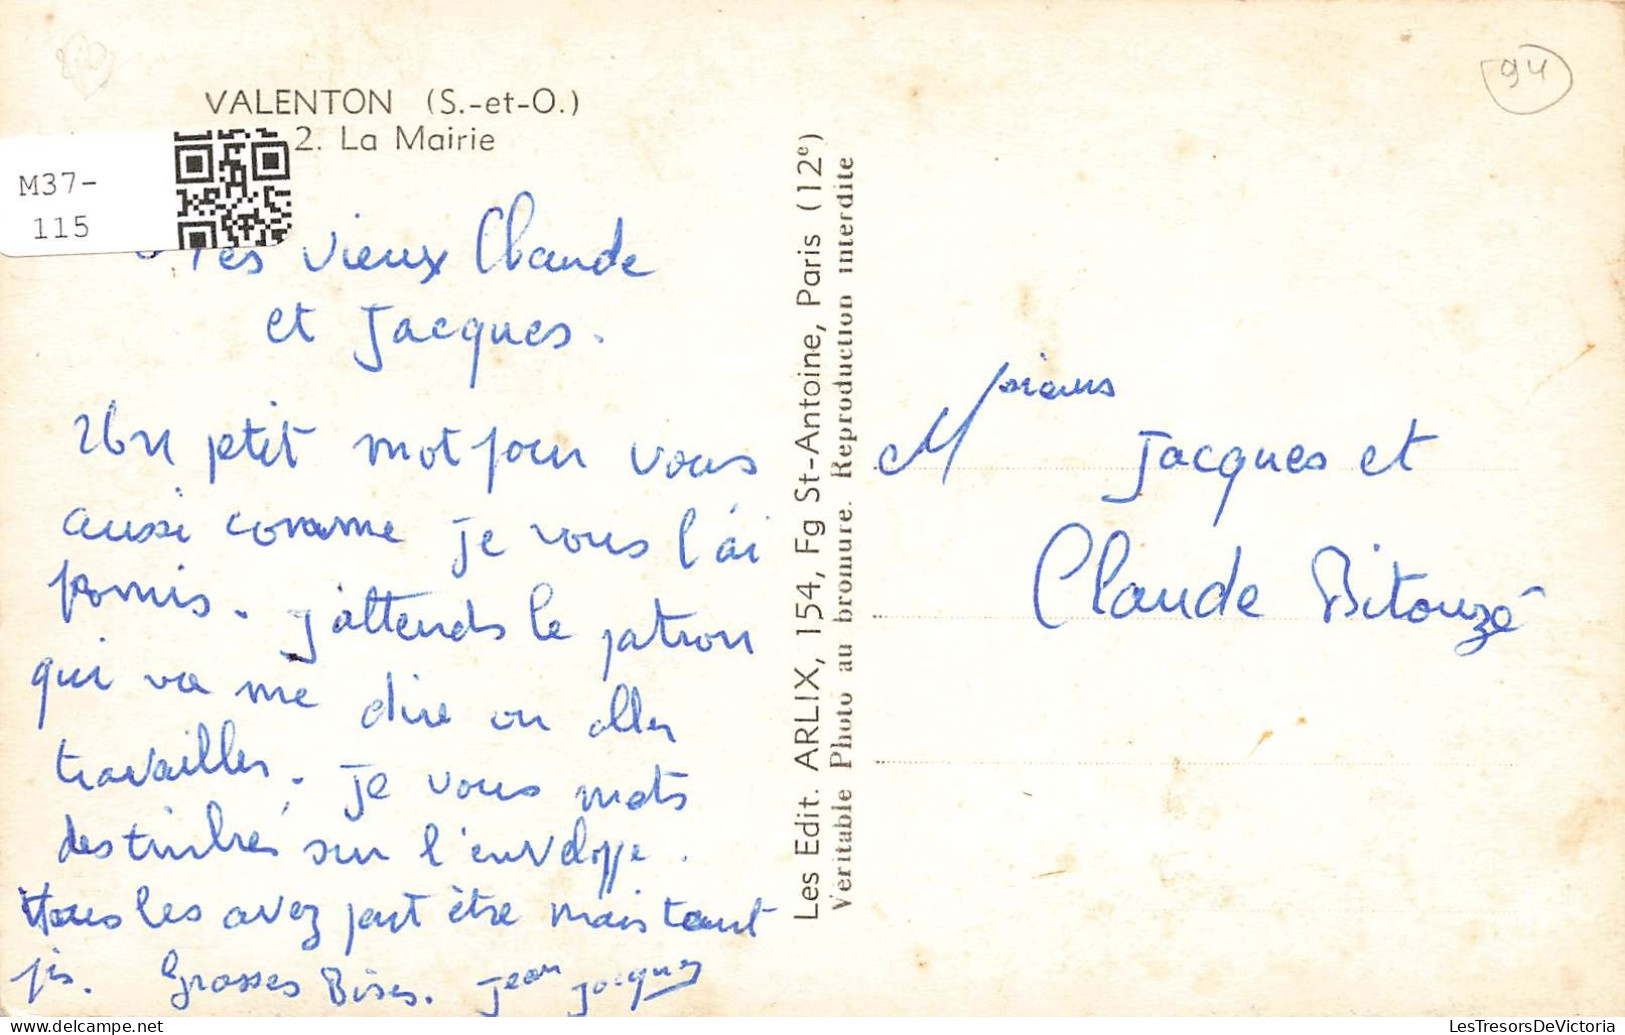 VALENTON (S.-et-O.)
2. La Mairie
M37-
115
94
Mes vieux Claude
et Jacques.
Un ptit mot pour vous
aussi comme je vous l'ai
promis. j'attends le patron
qui va me dire ou aller
travailler. Je vous mets
des timbres sur l'enveloppe.
Vous les avez peut être mais tant
pis. Grosses Bises. Jean Jacques
Les Edit. ARLIX, 154, Fg St-Antoine, Paris (12e)
Veritable Photo au bromure. Reproduction interdite
Jacques et
Claude Bitouzé
LesTresorsDeVictoria
delcampe.net